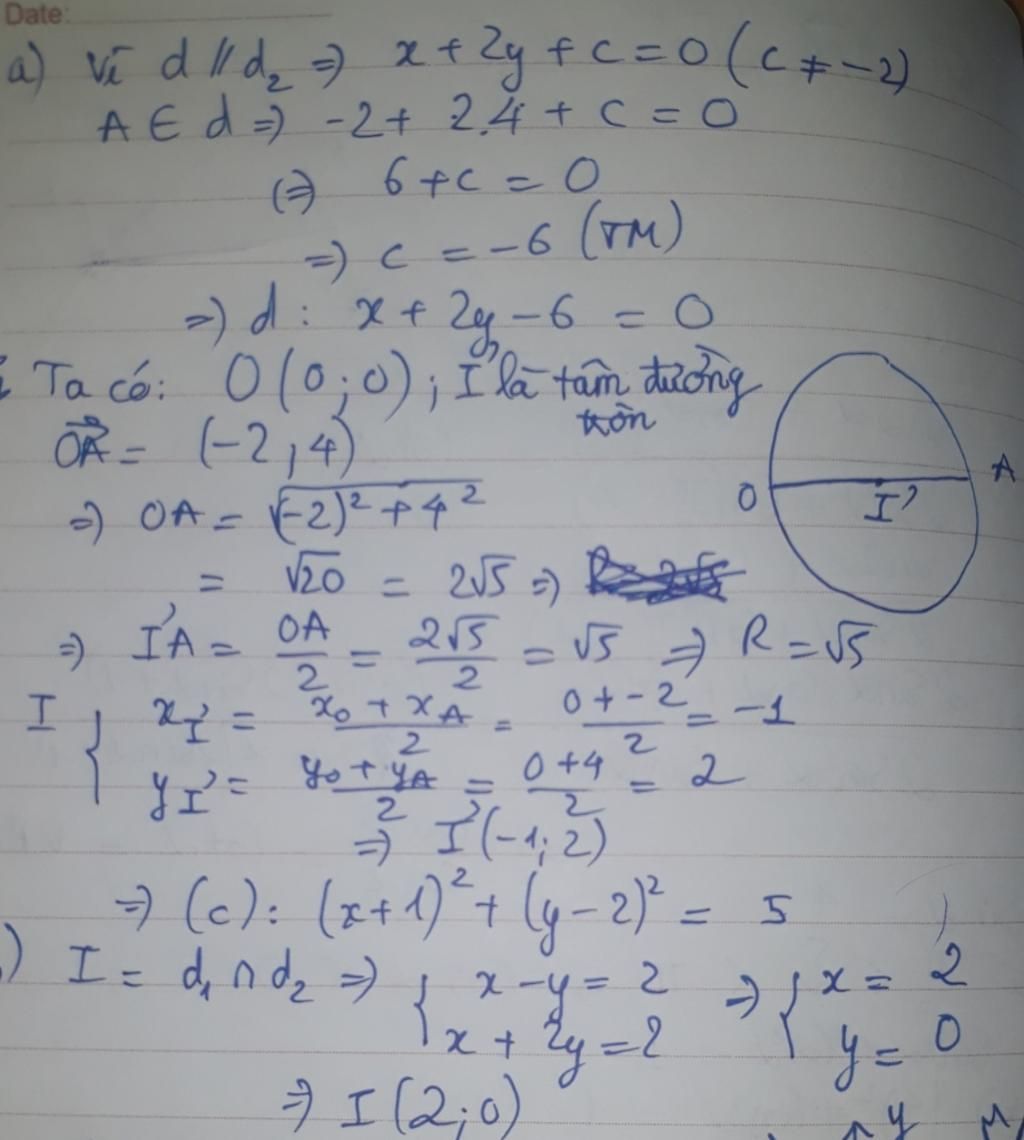 Date:
a) Vì d // d₂ => x + 2y + c = 0 (c ≠ -2)
A ∈ d => -2 + 2.4 + c = 0
(=) 6 + c = 0
=) c = -6 (TM)
=) d: x + 2y - 6 = 0
Ta có: O(0;0); I' là tâm đường
tròn
OA = (-2; 4)
=) OA = √(-2)² + 4²
= √20 = 2√5 =)
O I' A
=) I'A = OA/2 = 2√5/2 = √5 => R = √5
I { x_I' = (x_O + x_A)/2 = (0 + -2)/2 = -1
y_I' = (y_O + y_A)/2 = (0 + 4)/2 = 2
=) I'(-1; 2)
=) (c): (x+1)² + (y-2)² = 5
) I = d₁ ∩ d₂ => { x - y = 2 => { x = 2
x + 2y = 2 y = 0
=) I(2;0)